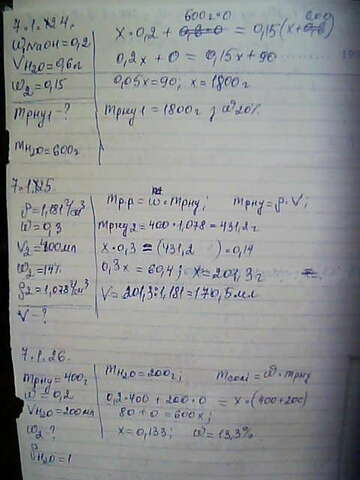 7.1.24.
ω NaOH = 0,2
V H2O = 0,6л
ω2 = 0,15
m р-ну1 - ?
m H2O = 600г
600г·0
x · 0,2 + = 0,15(x+600)
0,2x + 0 = 0,15x + 90
0,05x = 90; x = 1800г
m р-ну1 = 1800г з ω 20%
7.1.25
ρ = 1,181 г/см³
ω = 0,3
V2 = 400мл
ω2 = 14%
ρ2 = 1,078 г/см³
V - ?
m р.р = ω · m р-ну; m р-ну = ρ · V;
m р-ну2 = 400 · 1,078 = 431,2г
x · 0,3 = (431,2 ) = 0,14
0,3x = 60,4; x = 201,3г
V = 201,3 : 1,181 = 170,5 мл
7.1.26.
m р-ну = 400г
ω = 0,2
V H2O = 200мл
ω2 ?
ρ H2O = 1
m H2O = 200г; m солі = ω · m р-ну
0,2 · 400 + 200 · 0 = x · (400+200)
80 + 0 = 600x;
x = 0,133; ω = 13,3%